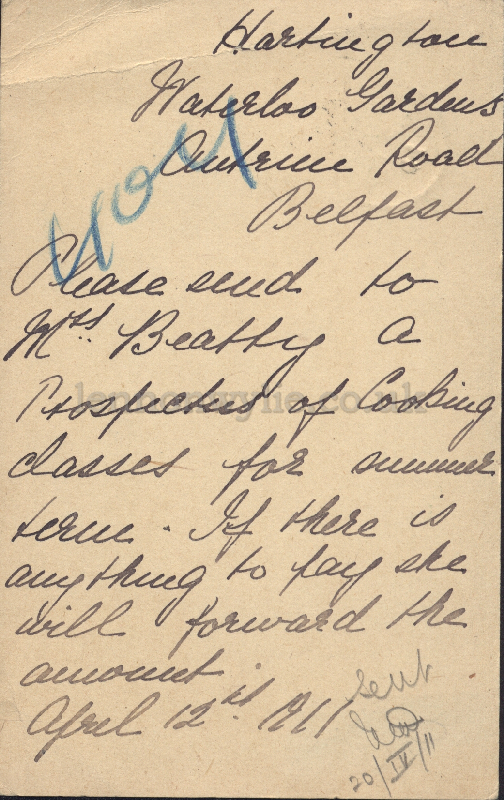 Hartington
Waterloo Gardens
Antrim Road
Belfast
Please send to
Mrs. Beatty a
Prospectus of Cooking
classes for summer
term. If there is
anything to pay she
will forward the
amount.
April 12th 1911
sent
20/IV/11
lennonwylie.co.uk